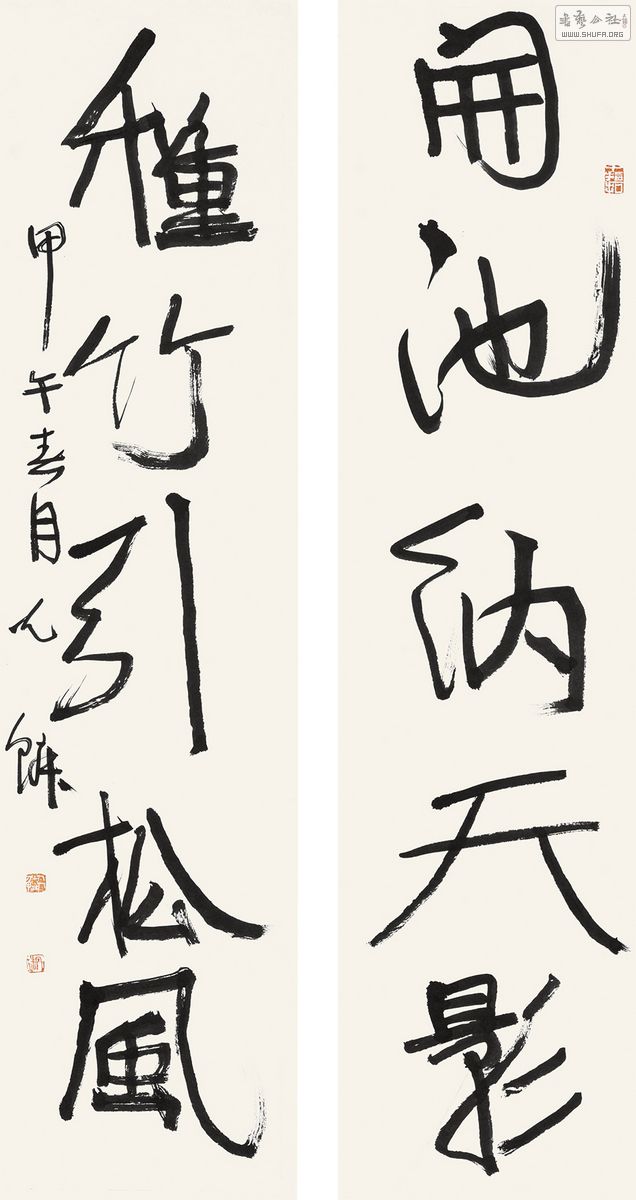 開池納天影
種竹引松風
甲午春月
書藝公社
WWW.SHUFA.ORG